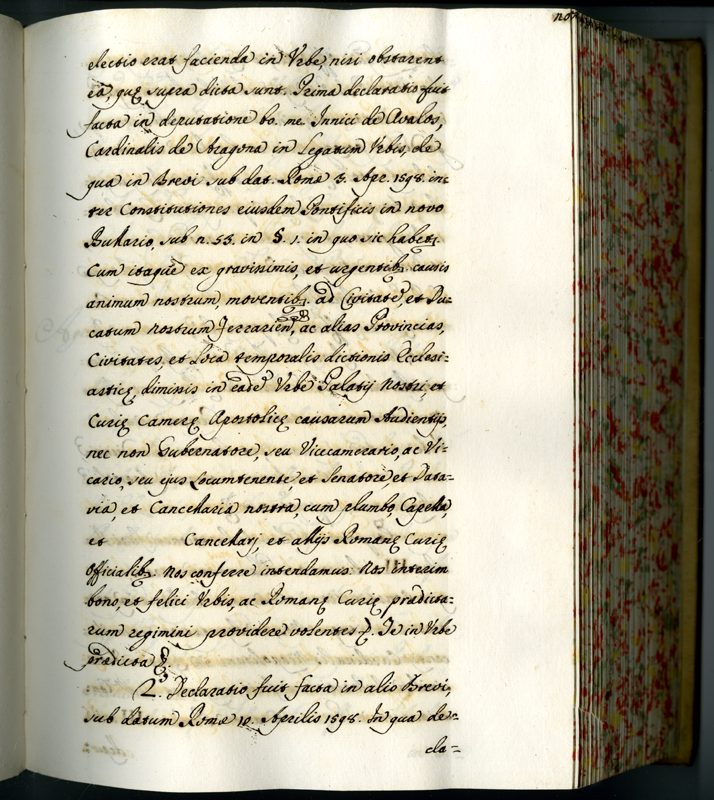 no
electio erat facienda in Vrbe, nisi obstarent
ea, quę supra dicta sunt. Prima declaratio fuit
facta in deputatione bo. me. Innici de Avalos,
Cardinalis de Aragona in Legatum Vrbis, de
qua in Brevi sub dat. Romæ 3. Apr. 1598. in:
ter Constitutiones eiusdem Pontificis in novo
Bullario, sub n. 55. in §. 1. in quo sic habetr.
Cum itaque ex gravissimis, et urgentib. causis
animum nostrum, moventib. ad Civitatē, et Du:
catum nostrum Ferrarien, ac alias Provincias,
Civitates, et Loca temporalis dictionis Ecclesi:
asticę, dimissis in eadē Vrbe Palatij Nostri, et
Curię Camerę Apostolicę causarum Audientijs,
nec non Gubernatore, seu Vicecamerario, ac Vi:
cario, seu ejus Locumtenente, et Senatore, et Data:
ria, et Cancellaria nostra, cum plumbo, Capella,
et Cancellarj, et alijs Romanę Curię
Officialib. Nos conferre intendamus. Nos interim
bono, et felici Vrbis, ac Romanę Curię prædicta:
rum regimini providere volentes &. Te in Vrbe
prædicta &.
2. Declaratio fuit facta in alio Brevi,
sub datum Romæ 10. Aprilis 1598. In qua de:
cla: